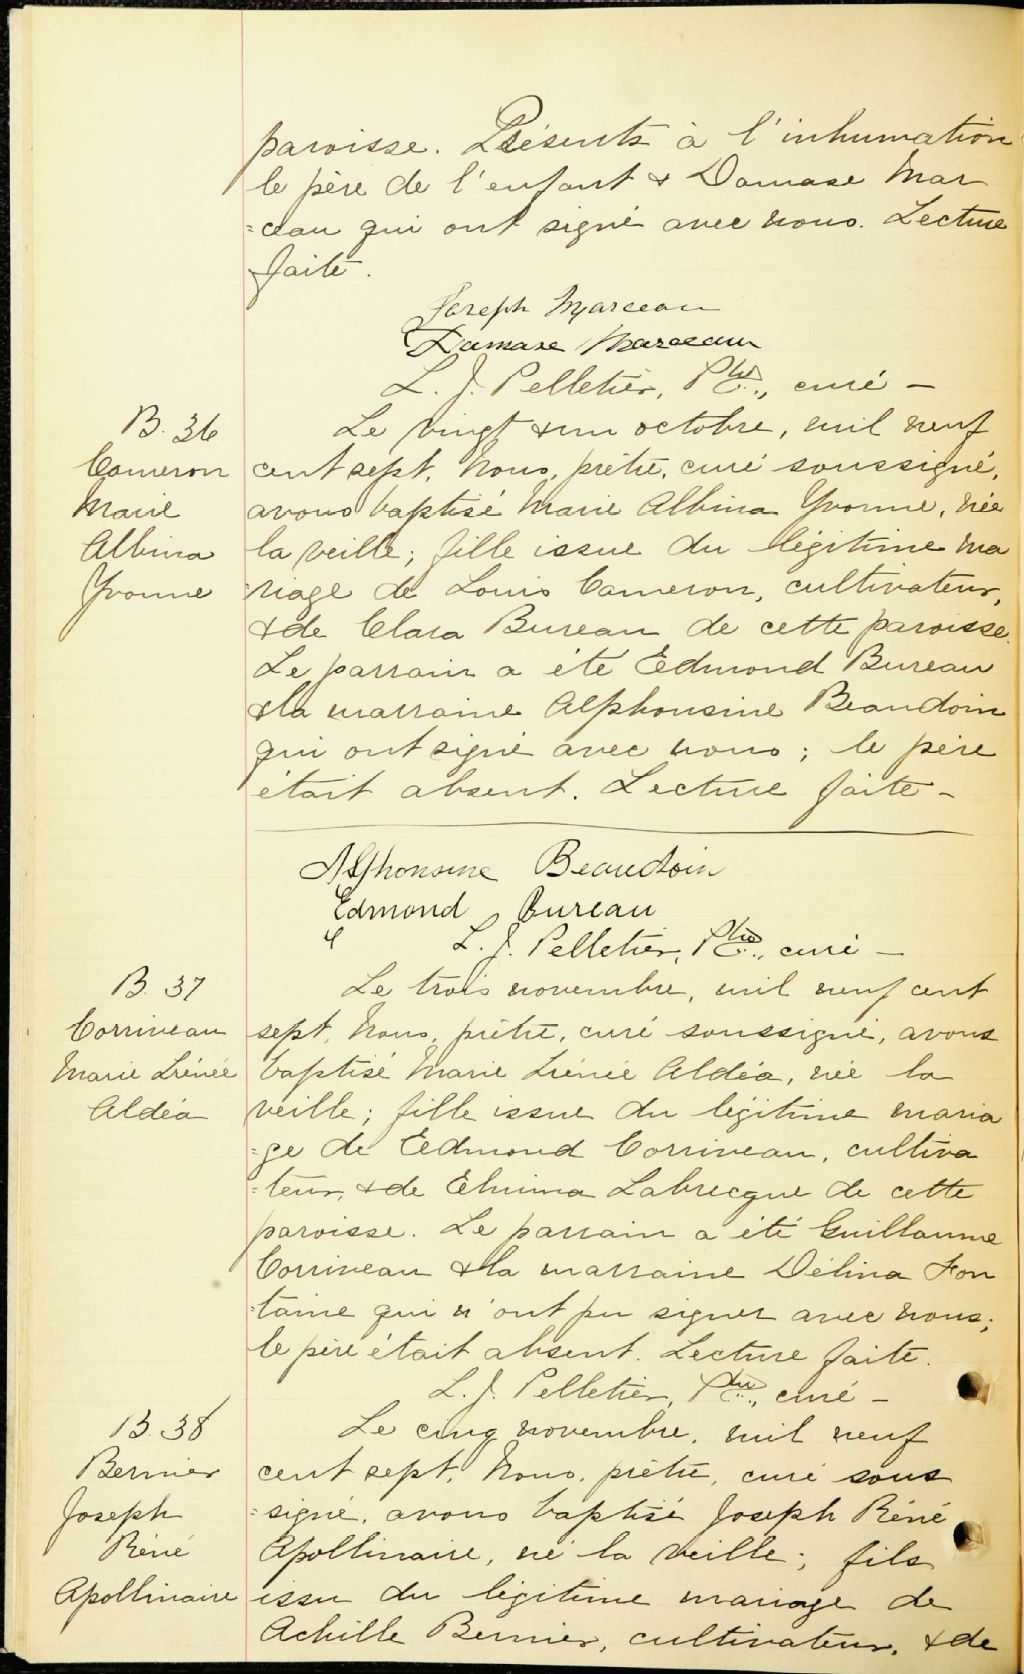 paroisse. Présents à l'inhumation
le père de l'enfant & Damase Mar
=ceau qui ont signé avec nous. Lecture
faite.
Joseph Marceau
Damase Marceau
L. J. Pelletier, Ptre., curé —
B. 36
Cameron
Marie
Albina
Yvonne
Le vingt & un octobre, mil neuf
cent sept, Nous, prêtre, curé soussigné,
avons baptisé Marie Albina Yvonne, née
la veille; fille issue du légitime ma
=riage de Louis Cameron, cultivateur,
& de Clara Bureau de cette paroisse.
Le parrain a été Edmond Bureau
& la marraine Alphonsine Beaudoin
qui ont signé avec nous; le père
était absent. Lecture faite —
Alphonsine Beaudoin
Edmond Bureau
L. J. Pelletier, Ptre., curé —
B. 37
Corriveau
Marie Irénée
Aldéa
Le trois novembre, mil neuf cent
sept, Nous, prêtre, curé soussigné, avons
baptisé Marie Irénée Aldéa, née la
veille; fille issue du légitime maria
=ge de Edmond Corriveau, cultiva
=teur, & de Elmina Labrecque de cette
paroisse. Le parrain a été Guillaume
Corriveau & la marraine Délina Fon
=taine qui n'ont pu signer avec nous;
le père était absent. Lecture faite.
L. J. Pelletier, Ptre., curé —
B. 38
Bernier
Joseph
Réné
Apollinaire
Le cinq novembre, mil neuf
cent sept, Nous, prêtre, curé sous
=signé, avons baptisé Joseph Réné
Apollinaire, né la veille; fils
issu du légitime mariage de
Achille Bernier, cultivateur, & de